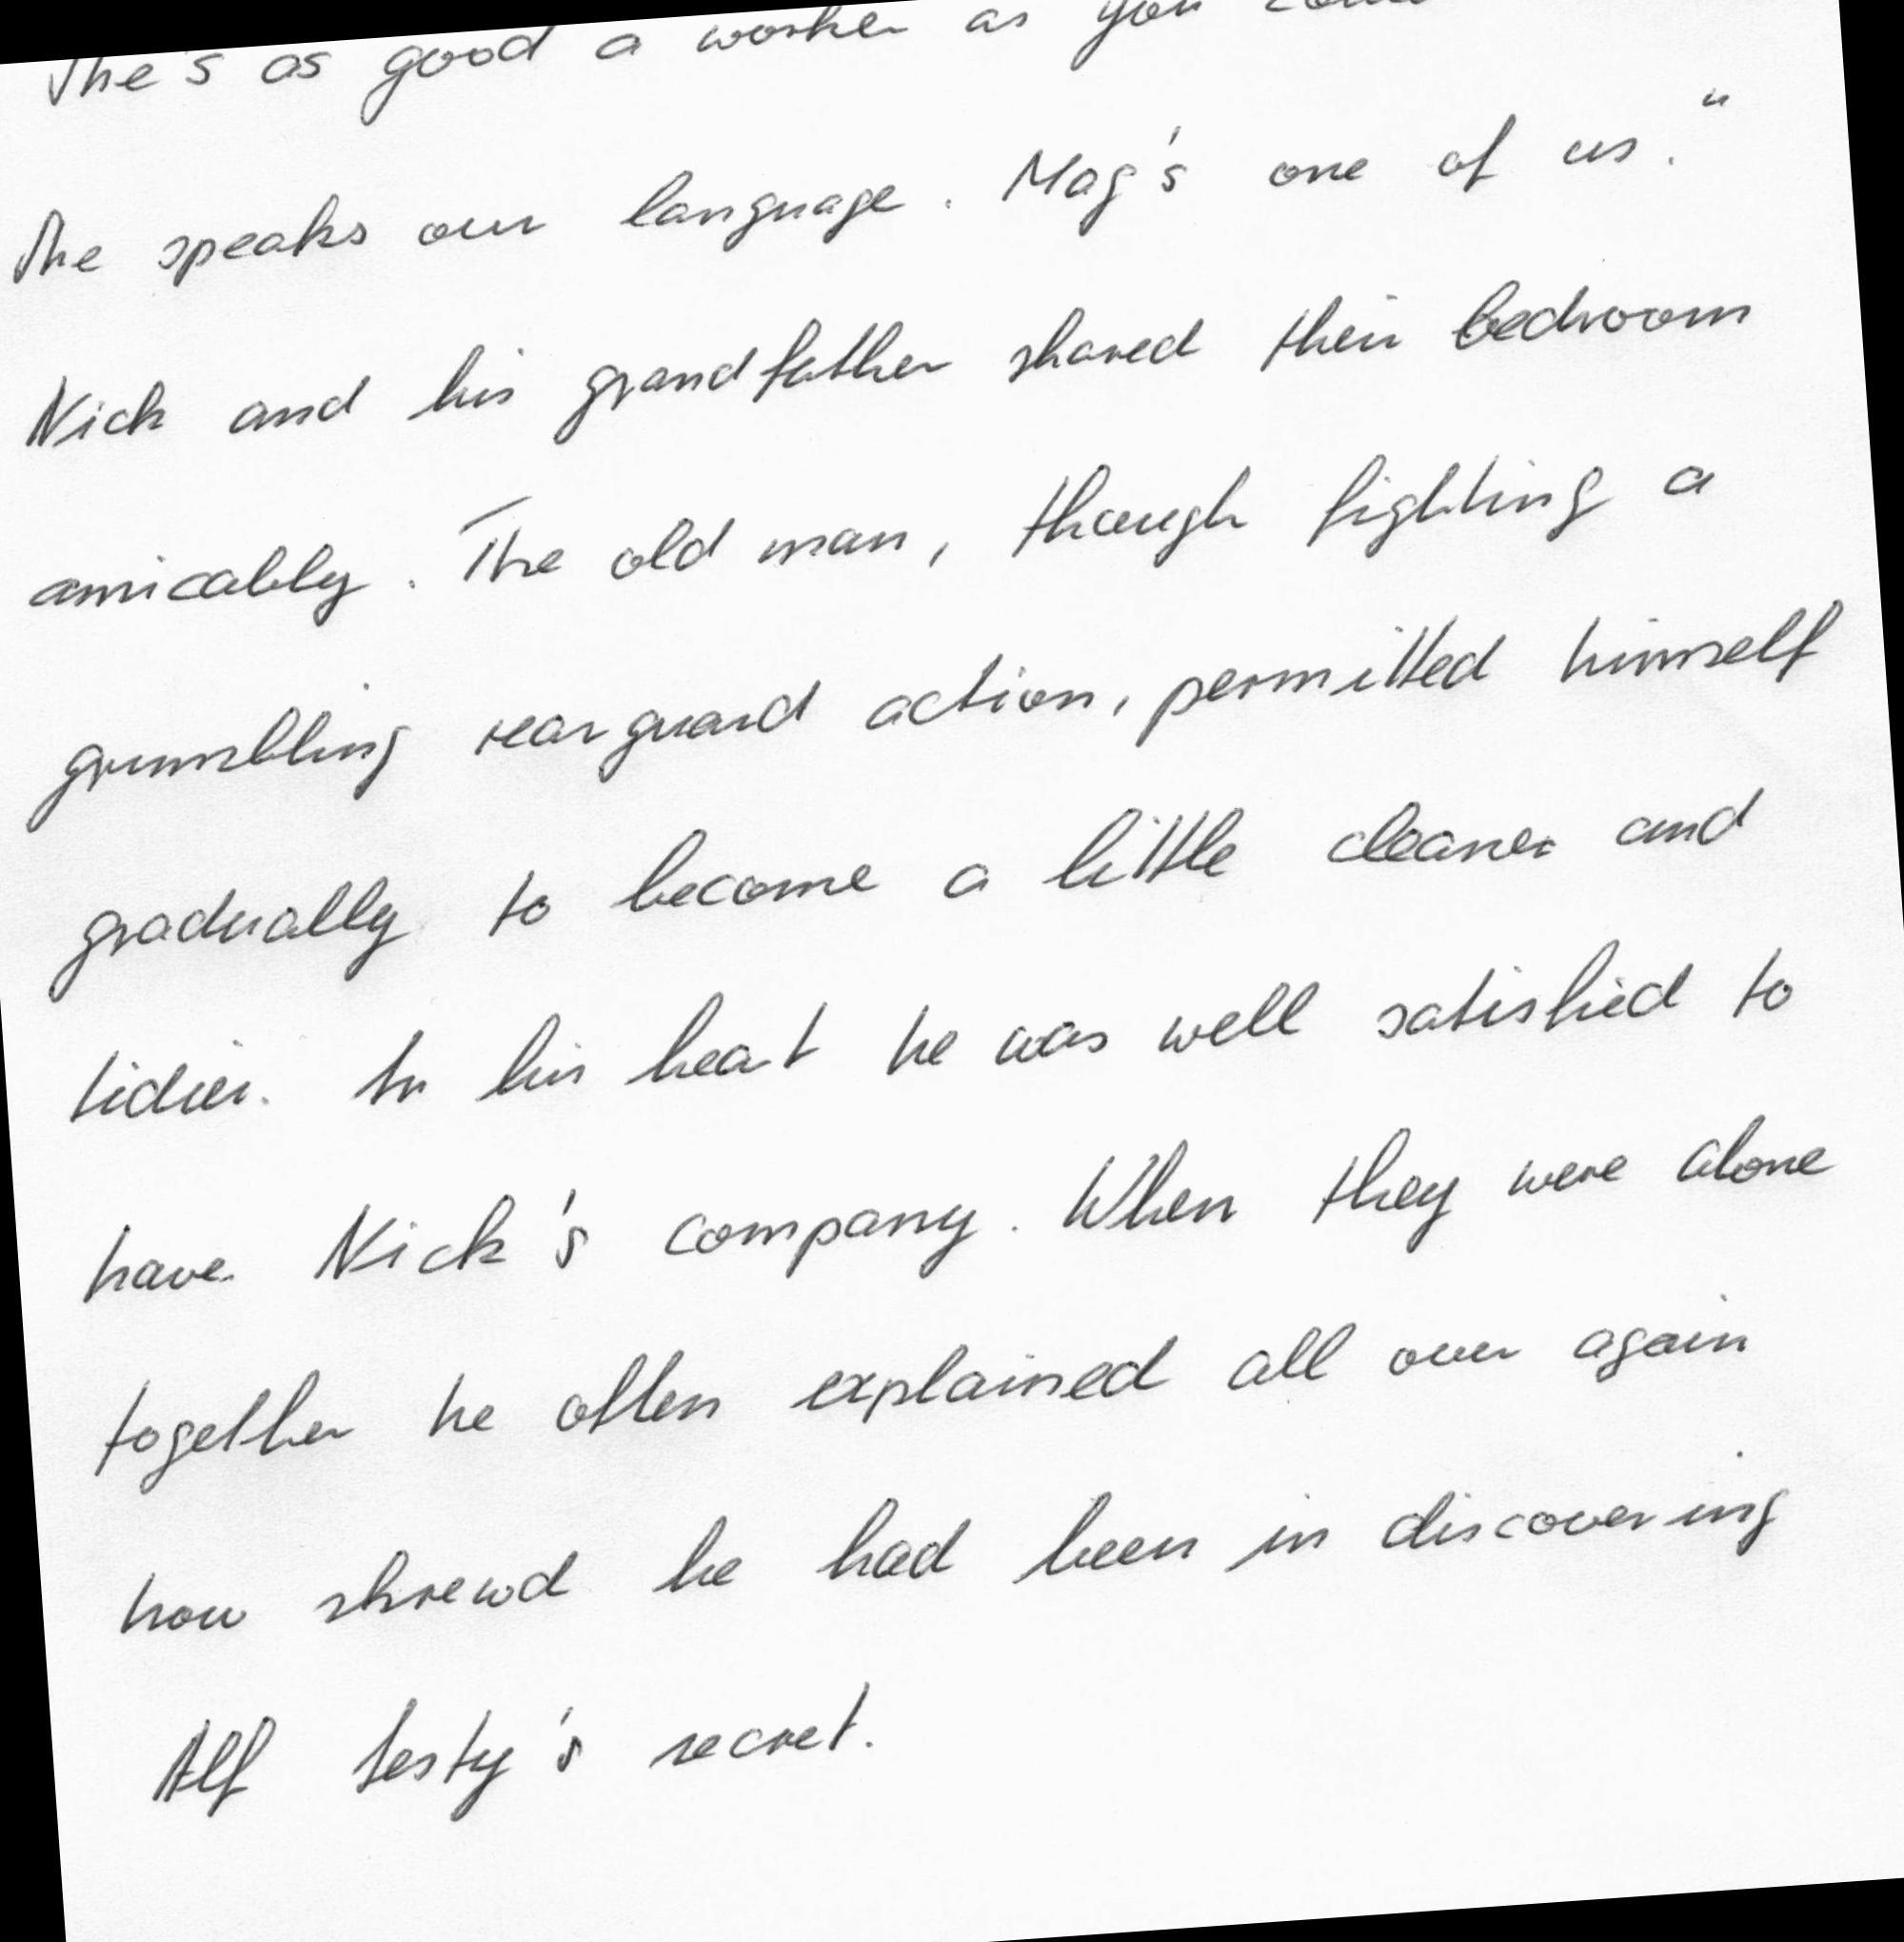 She's as good a worker as you could
She speaks our language. Mag's one of us."
Nick and his grandfather shared their bedroom
amicably. The old man, though fighting a
grumbling rearguard action, permitted himself
gradually to become a little cleaner and
tidier. In his heart he was well satisfied to
have Nick's company. When they were alone
together he often explained all over again
how shrewd he had been in discovering
Alf Testy's secret.